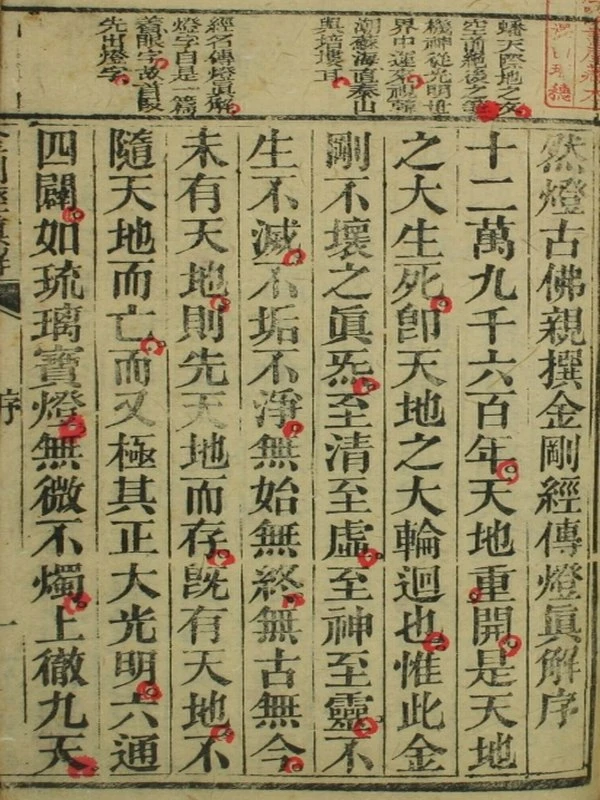 蟠天際地之文
空前絶後之筆
機神從光明世
界中運來視韓
潮蘇海直泰山
與培塿耳
經名傳燈眞解
燈字自是一篇
着眼字故首段
先出燈字
然燈古佛親撰金剛經傳燈眞解序
十二萬九千六百年天地重開是天地
之大生死卽天地之大輪迴也惟此金
剛不壞之眞炁至清至虛至神至靈不
生不滅不垢不淨無始無終無古無今
未有天地則先天地而存旣有天地不
隨天地而亡而又極其正大光明六通
四闢如琉璃寶燈無微不燭上徹九天
序
一